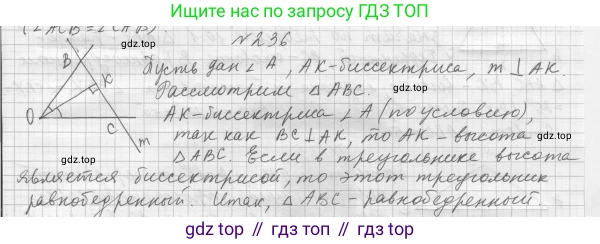 Ищите нас по запросу ГДЗ ТОП
(∠ACB = ∠CAB).
gdz.top
№236
B
K
O
C
m
Пусть дан ∠A, AK-биссектриса, m ⊥ AK.
Рассмотрим △ABC.
gdz.top
AK-биссектриса ∠A (по условию),
так как BC⊥AK, то AK - высота
△ABC. Если в треугольнике высота
является биссектрисой, то этот треугольник
gdz.top
gdz.top
равнобедренный. Итак, △ABC - равнобедренный.
gdz.top // гдз.топ // gdz.top // гдз.топ